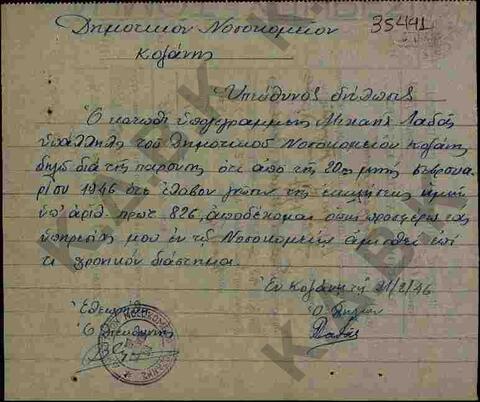 35441
Δημοτικόν Νοσοκομείον
Κοζάνης
Υπεύθυνος δήλωσις
Ο κάτωθι υπογεγραμμένος Μιχαήλ Λαδάς
υπάλληλος του Δημοτικού Νοσοκομείου Κοζάνης
δηλώ δια της παρούσης ότι από της 20ης μηνός Φεβρουα-
ρίου 1946 ότε έλαβον γνώσιν της
υπ' αριθ. πρωτ 826, αποδέχομαι όπως προσφέρω τας
υπηρεσίας μου εν τω Νοσοκομείω αμισθεί επί
τι χρονικόν διάστημα.
Εν Κοζάνη τη 21/2/46
Εθεωρήθη Ο δηλών
Ο Διευθυντής Λαδάς